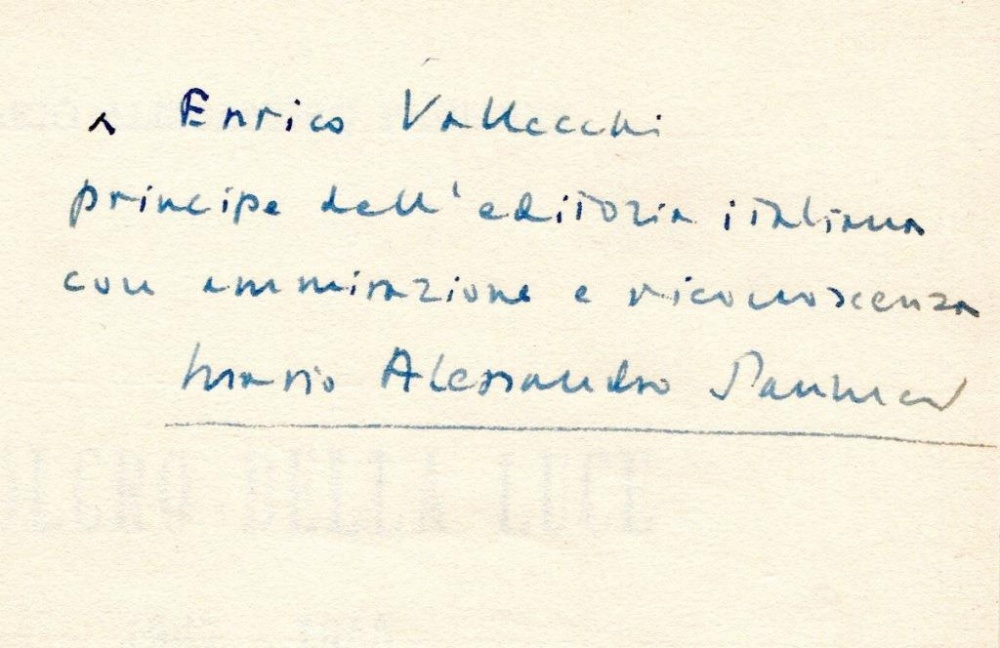 a Enrico Vallecchi
principe dell'editoria italiana
con ammirazione e riconoscenza
Mario Alessandro